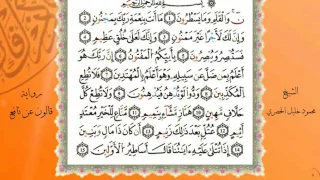 بِسْمِ اللَّهِ الرَّحْمَٰنِ الرَّحِيمِ
نٓ وَالْقَلَمِ وَمَا يَسْطُرُونَ مَا أَنتَ بِنِعْمَةِ رَبِّكَ بِمَجْنُونٍ
وَإِنَّ لَكَ لَأَجْرًا غَيْرَ مَمْنُونٍ وَإِنَّكَ لَعَلَىٰ خُلُقٍ عَظِيمٍ
فَسَتُبْصِرُ وَيُبْصِرُونَ بِأَييِّكُمُ الْمَفْتُونُ إِنَّ رَبَّكَ هُوَ
أَعْلَمُ بِمَن ضَلَّ عَن سَبِيلِهِ وَهُوَ أَعْلَمُ بِالْمُهْتَدِينَ فَلَا تُطِعِ
الْمُكَذِّبِينَ وَدُّوا لَوْ تُدْهِنُ فَيُدْهِنُونَ وَلَا تُطِعْ كُلَّ
حَلَّافٍ مَّهِينٍ هَمَّازٍ مَّشَّاءٍ بِنَمِيمٍ مَّنَّاعٍ لِّلْخَيْرِ مُعْتَدٍ
أَثِيمٍ عُتُلٍّ بَعْدَ ذَٰلِكَ زَنِيمٍ أَن كَانَ ذَا مَالٍ وَبَنِينَ
إِذَا تُتْلَىٰ عَلَيْهِ آيَاتُنَا قَالَ أَسَاطِيرُ الْأَوَّلِينَ
الشيخ
محمود خليل الحصري
رواية
قالون عن نافع